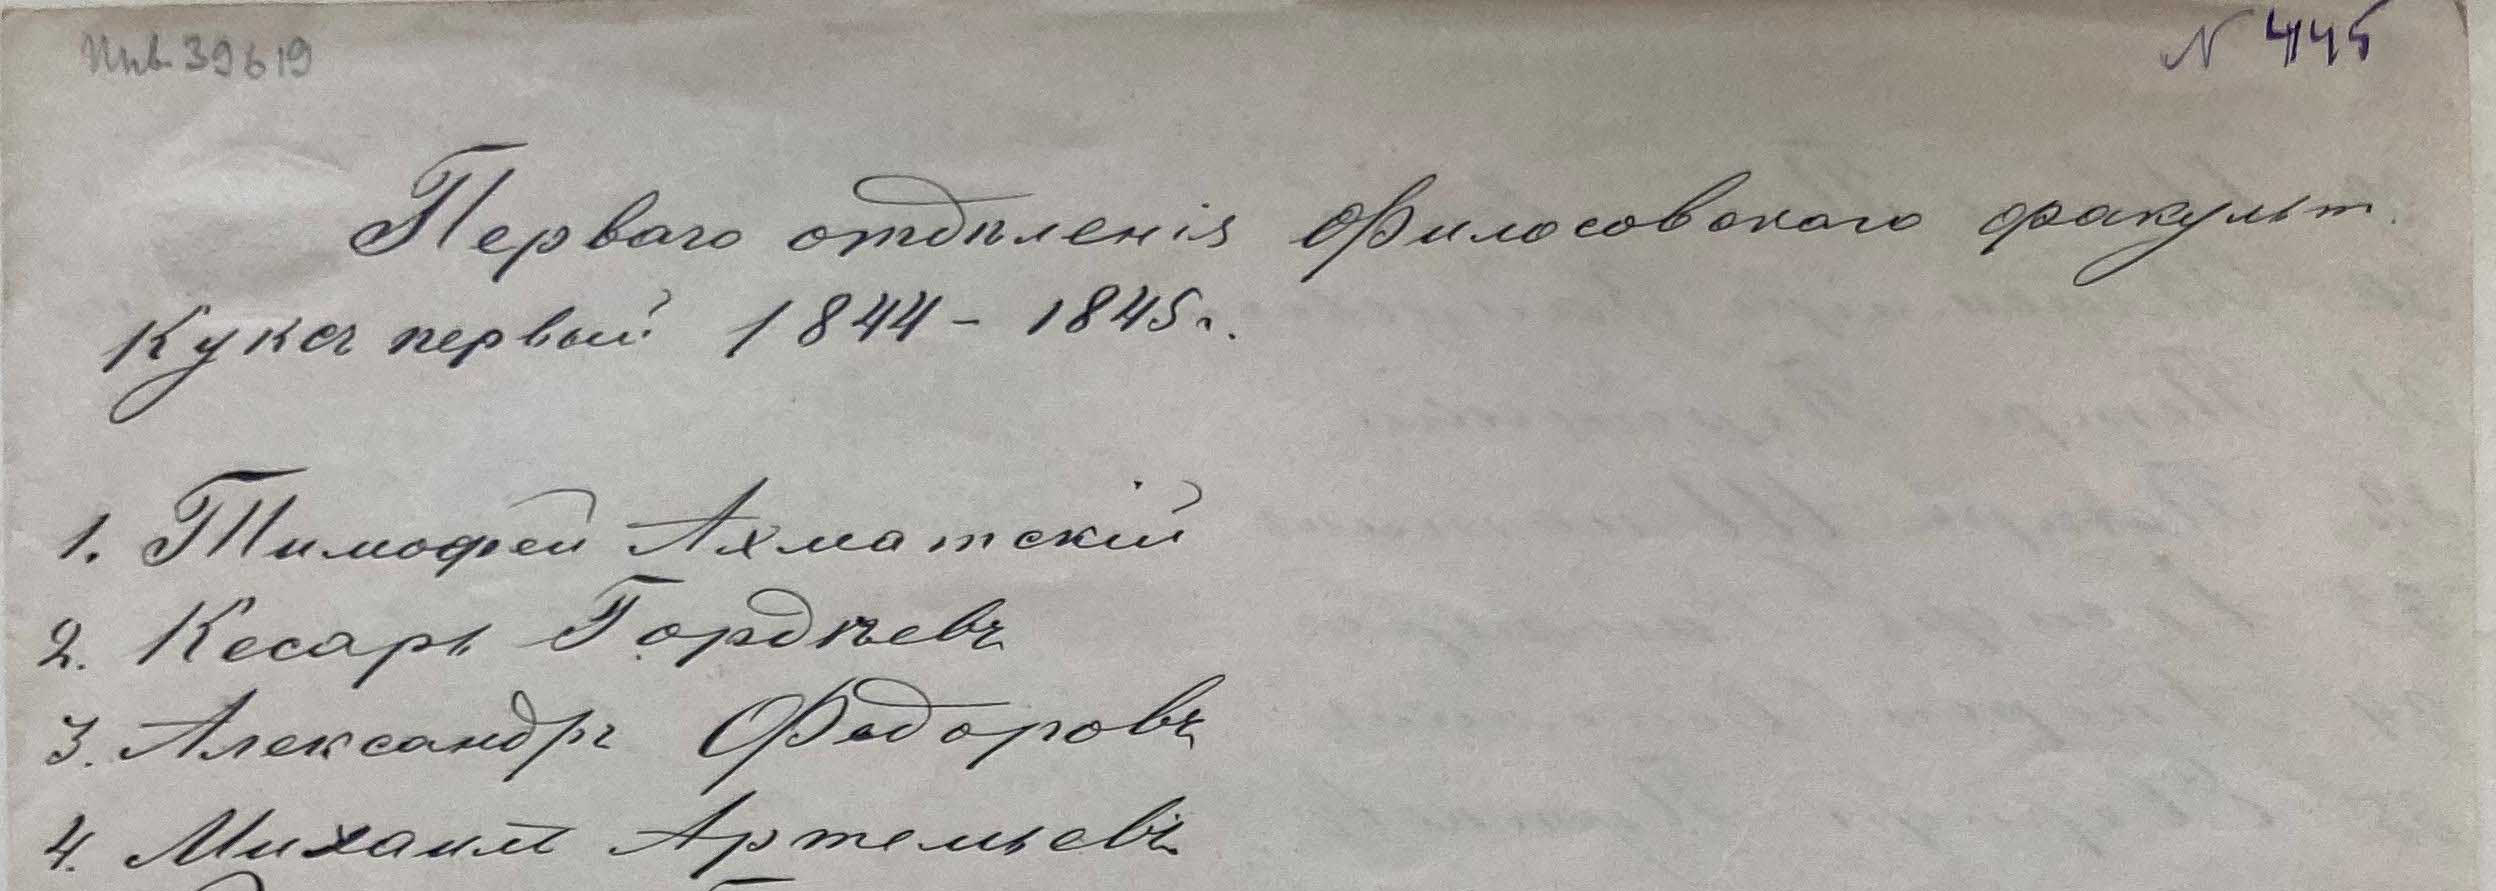 Инв. 39619
N 445
Перваго отдѣленія Философскаго факульт.
Куксъ первый 1844 - 1845 г.
1. Тимофей Ахматскій
2. Кесарь Гордѣевъ
3. Александръ Федоровъ
4. Михаилъ Артемьевъ